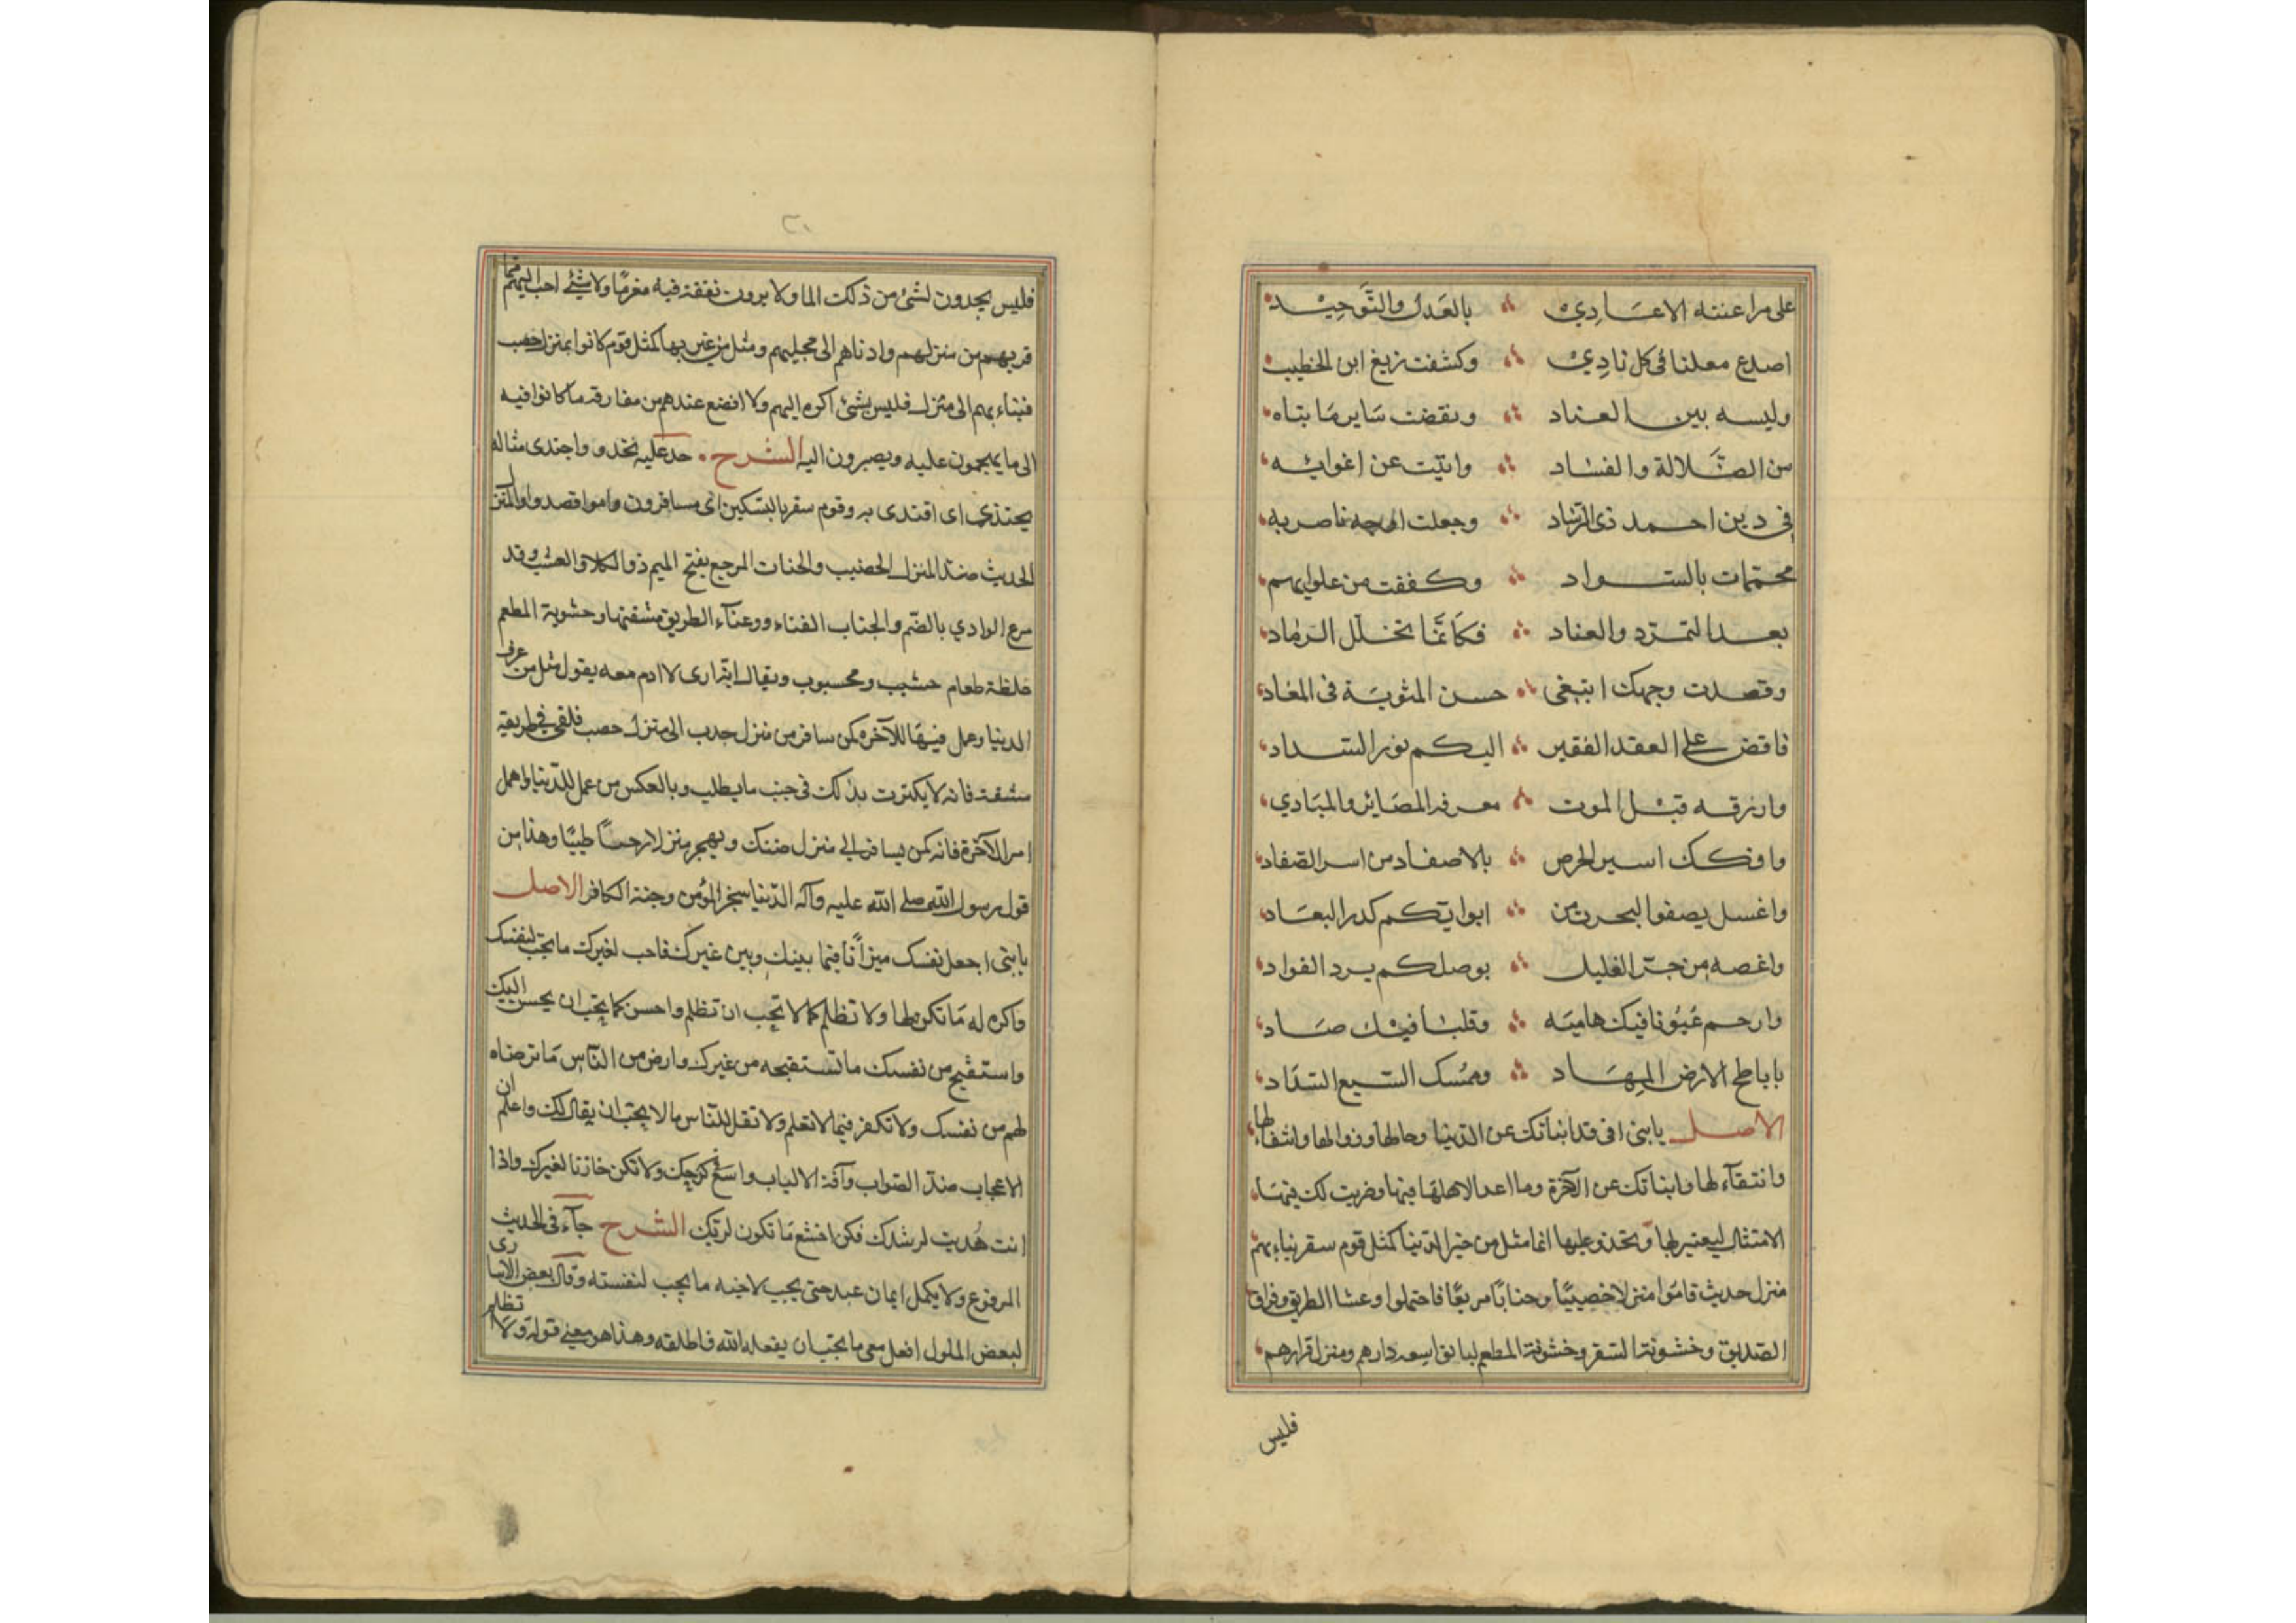 على مراعنته الاعادي بالعدل والتوحيد
اصدع معلنا فى كل نادي وكشفت زيغ ابن الخطيب
ولبسه بين العناد ونقضت ساير ما بناه
من الضلالة والفساد وابنت عن اغوائه
فى دين احمد ذى الرشاد وجعلت اوجه ناصريه
محممات بالسواد وكففت من غلوائهم
بعد التمرد والعناد فكانما نخل الرماد
وقصدت وجهك ابتغى حسن المثوبة فى المعاد
فافض على العقد الفقير اليكم نور السداد
وارزقه قبل الموت معرفه المصائر والمبادي
وافكك اسير الحرص بالاصفاد من اسر الصفاد
واغسل بصفو البحر من ابوابكم كدر البعاد
واغصه من حر الغليل بوصلكم برد الفواد
وارحم عيونا فيك هاميه وقلبا فيك صاد
ياباطح الارض المهاد وممسك السبع الشداد
الاصل يابنى انى قد انباتك عن الدنيا وحالها وزوالها وانتقالها
وانتقاء لها وانباتك عن الآخرة وما اعد لاهلها فيها وضربت لك فيهما
الامثال ليعتبر بها وتحذو عليها انما مثل من خبر الدنيا كمثل قوم سفر نبا بهم
منزل حديث فاموا منزلا خصيبا وجنابا مريعا فاحتملوا وعثا الطريق وفراق
الصديق وخشونة السفر وخشونة المطعم لياتوا سعه دارهم ومنزل قرارهم
فليس
٢٠
فليس يجدون لشئ من ذلك الما ولا يرون نفقة فيه مغرما ولا شئ احب اليهم مما
قربهم من منزلهم وادناهم الى محلهم ومثل من غتر بها كمثل قوم كانوا بمنزل خصب
فنباء بهم الى منزل فليس بشئ اكره اليهم ولا افضع عندهم من مفارقه ما كانوا فيه
الى ما يهجمون عليه ويصيرون اليه الشرح حد عليه تحذو واحتدى مثاله
يحتذى اى اقتدى به وقوم سفر بالتسكين اى مسافرون واموا قصدوا والمنزل
الحديث ضد المنزل الخصيب والجناب المرجع بفتح الميم ذو الكلاء والعشب وقد
مرع الوادي بالضم والجناب الفناء ووعثاء الطريق مشقتها وحشوبة المطعم
غلظة طعام حشيب ومحسبوب ويقال انه ارى لا ادم معه يقول مثل من عرف
الدينا وعمل فيها للآخره كمن سافر من منزل جدب الى منزل خصب فلقى فى طريقه
مشقة فانه لا يكترت بذلك فى جنب ما يطلب وبالعكس من عمل للدنيا واهمل
امر الآخرة فانه كمن يسافر الى منزل ضنك ويهجر منزلا رحبا طيبا وهذا من
قول رسول الله صلى الله عليه وآله الدنيا سجن المؤمن وجنة الكافر الاصل
يابنى اجعل نفسك ميزانا فيما بينك وبين غيرك فاحب لغيرك ما تحب لنفسك
واكره له ما تكره لها ولا تظلم كما لا تحب ان تظلم واحسن كما تحب ان يحسن اليك
واستقبح من نفسك ما تستقبحه من غيرك وارض من الناس ما ترضاه
لهم من نفسك ولا تكفر فيما لا تعلم ولا تقل للناس ما لا يحب ان يقال لك واعلم ان
الاعجاب ضد الصواب وآفة الالباب واسع فى كرجك ولا تكن خازنا لغيرك واذا
انت هديت لرشدك فكن اخشع ما تكون لربك الشرح جآء فى الحديث
المرفوع ولا يكمل ايمان عبد حتى يحب لاخيه ما يحب لنفسته وقال بعض الاسارى
لبعض الملول افعل معى ما تحب ان يفعله الله فاطلقه وهذا هو معنى قوله ولا تظلم